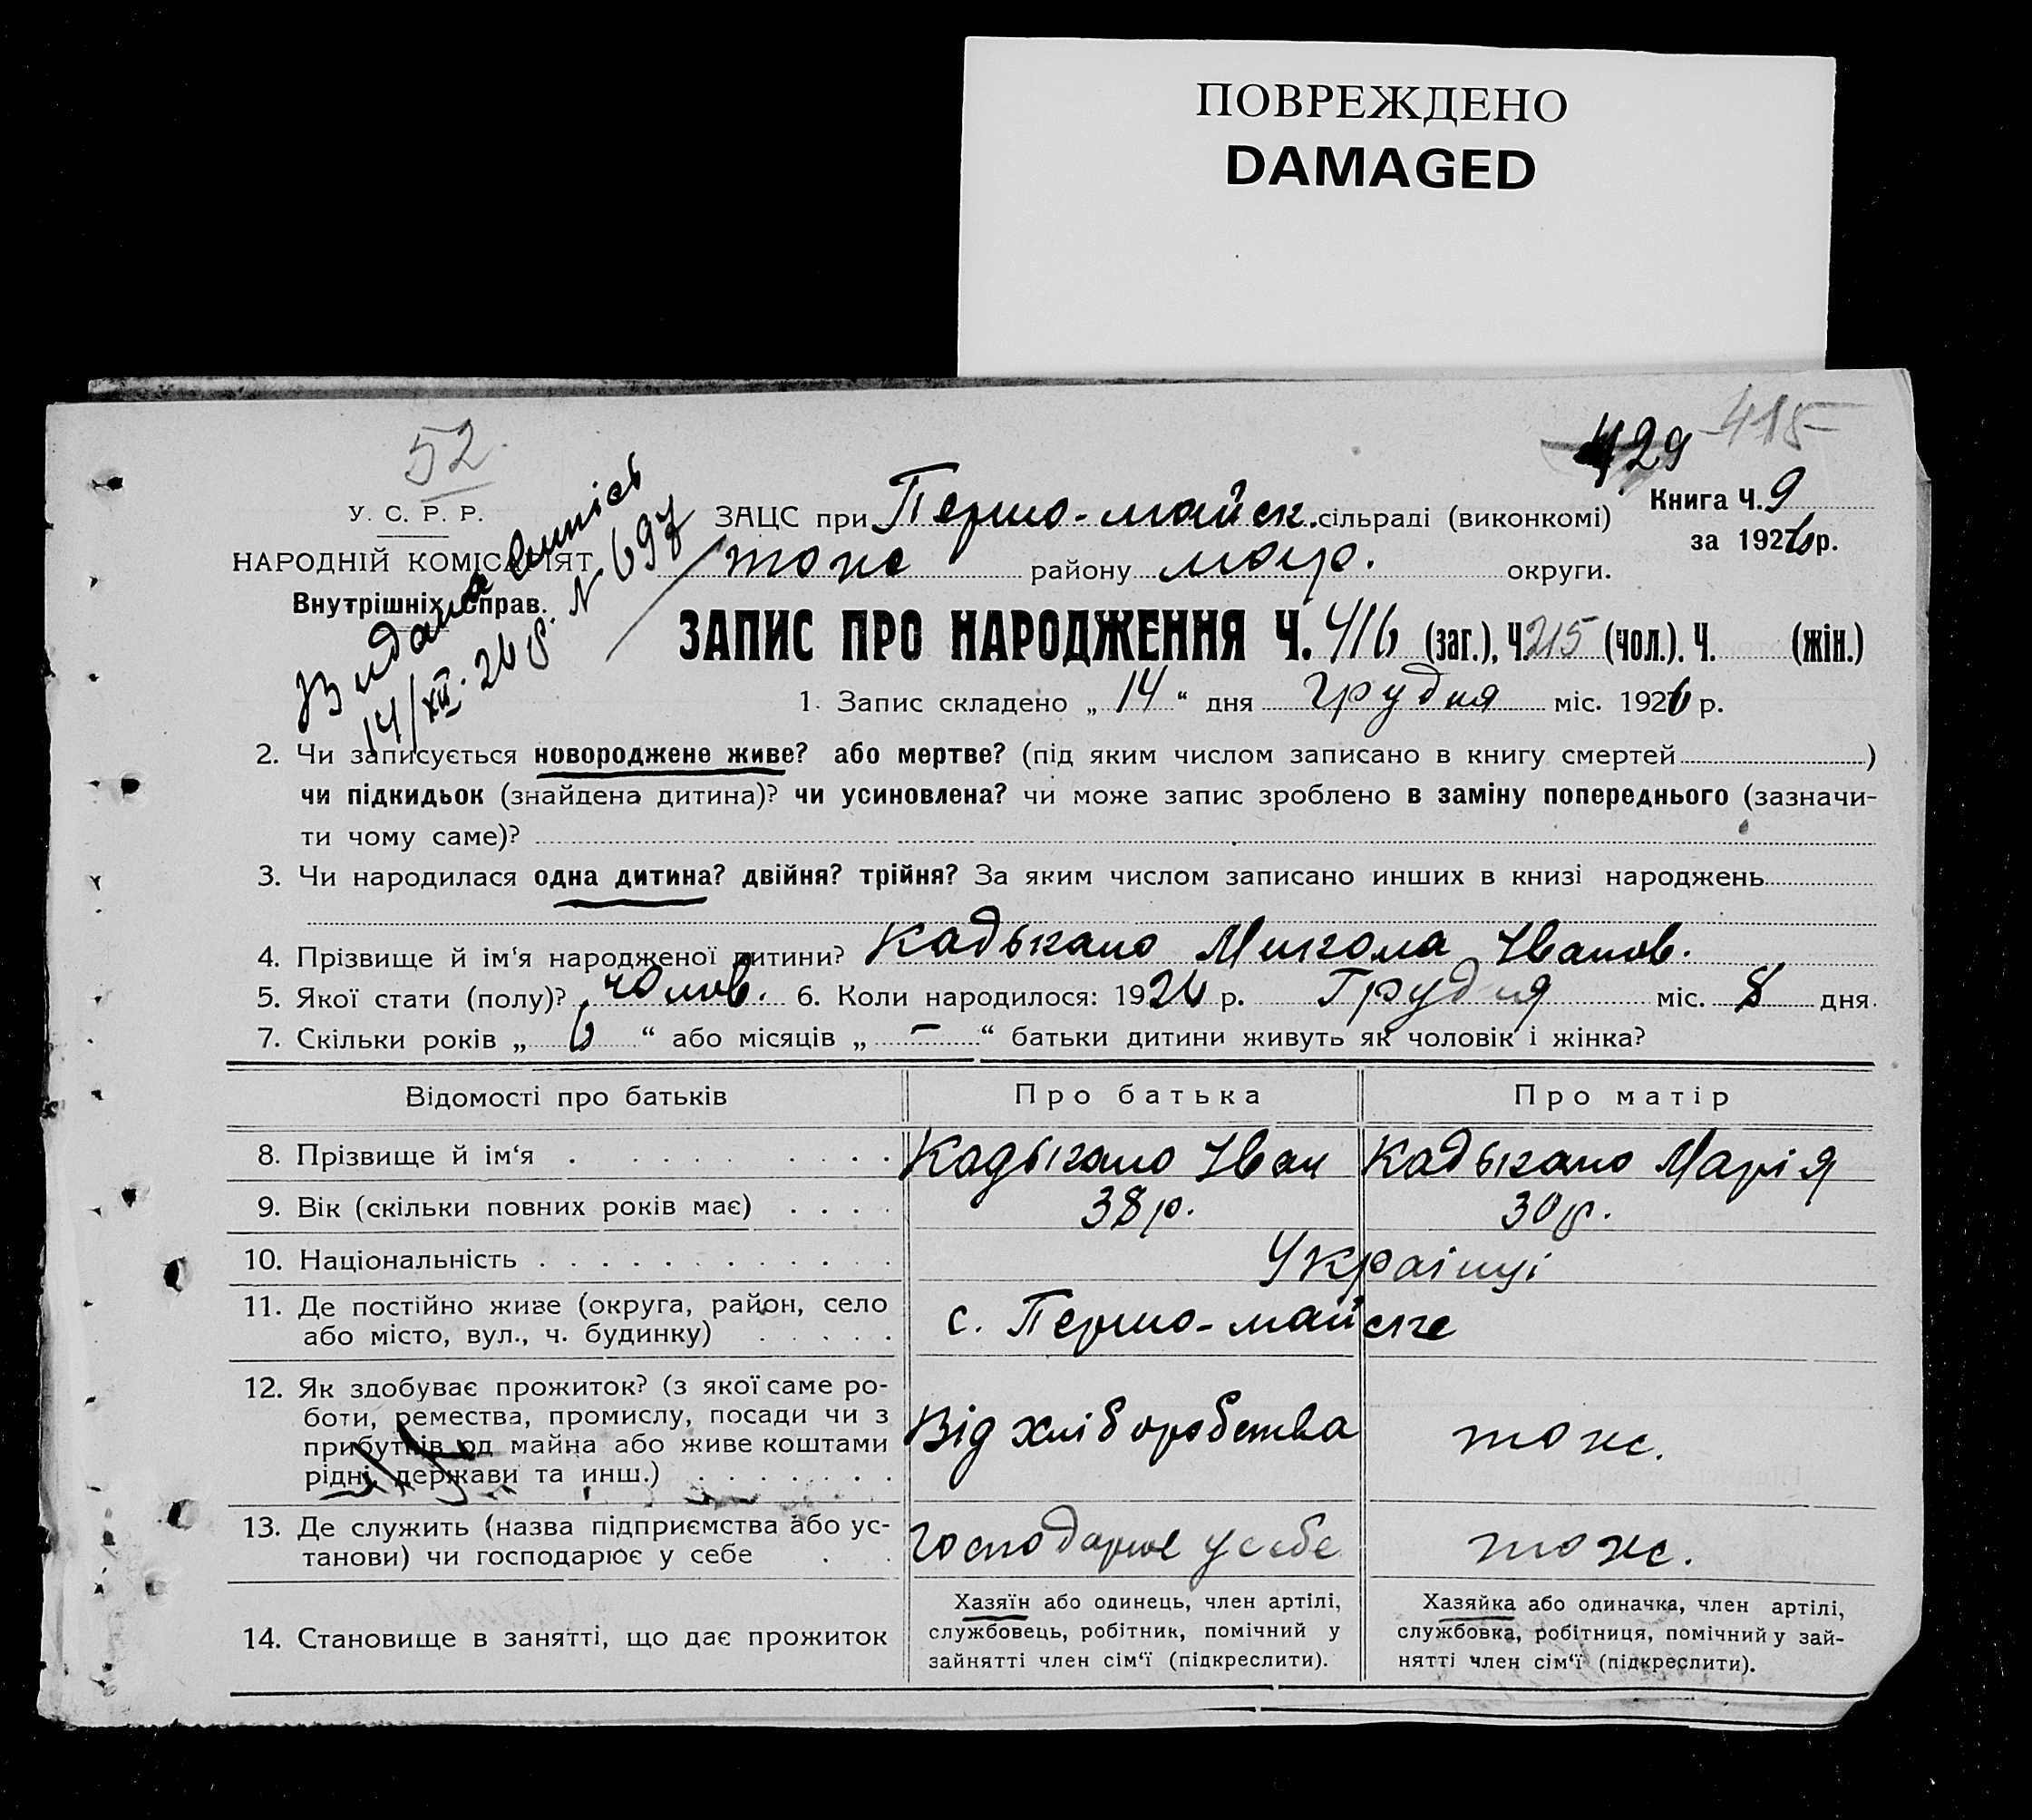 ПОВРЕЖДЕНО
DAMAGED
52
429 415
У. С. Р. Р.
НАРОДНІЙ КОМІСАРІЯТ
Внутрішніх Справ.
Видана
14/XII. 26 р. N 697
ЗАЦС при Перво-майск. сільраді (виконкомі)
Книга Ч. 9
за 1926 р.
тож району округи.
ЗАПИС ПРО НАРОДЖЕННЯ Ч. 416 (заг.), Ч. 215 (чол.). Ч. (жін.)
1. Запис складено „ 14 “ дня Грудня міс. 1926 р.
2. Чи записується новороджене живе? або мертве? (під яким числом записано в книгу смертей )
чи підкидьок (знайдена дитина)? чи усиновлена? чи може запис зроблено в заміну попереднього (зазначи-
ти чому саме)?
3. Чи народилася одна дитина? двійня? трійня? За яким числом записано инших в книзі народжень
4. Прізвище й ім‘я народженої дитини? Кадькало Микола Іванов.
5. Якої стати (полу)? чолов. 6. Коли народилося: 1926 р. Грудня міс. 8 дня.
7. Скільки років „ 6 “ або місяців „ — “ батьки дитини живуть як чоловік і жінка?
Відомості про батьків Про батька Про матір
8. Прізвище й ім‘я Кадькало Іван Кадькало Марія
9. Вік (скільки повних років має) 38 р. 30 р.
10. Національність Українці
11. Де постійно живе (округа, район, село
або місто, вул., ч. будинку)
с. Перво-майське
12. Як здобуває прожиток? (з якої саме ро-
боти, ремества, промислу, посади чи з
прибутків од майна або живе коштами
рідні, держави та инш.)
Від хліборобства тож.
13. Де служить (назва підприємства або ус-
танови) чи господарює у себе
Господарює у себе тож.
14. Становище в занятті, що дає прожиток
Хазяїн або одинець, член артілі,
службовець, робітник, помічний у
зайнятті член сім‘ї (підкреслити).
Хазяйка або одиначка, член артілі,
службовка, робітниця, помічний у зай-
нятті член сім‘ї (підкреслити).